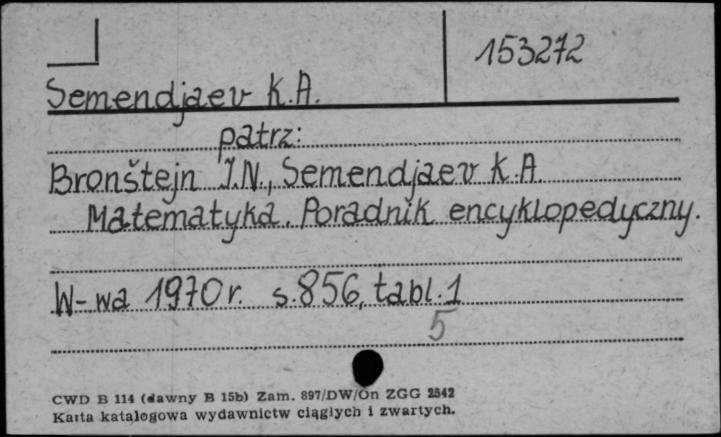 153272
Semendjaev K.A.
patrz:
Bronštejn I.N., Semendjaev K.A.
Matematyka. Poradnik encyklopedyczny.
W-wa 1970r. s.856, tabl.1
5
CWD B 114 (dawny B 15b) Zam. 897/DW/On ZGG 2542
Karta katalogowa wydawnictw ciągłych i zwartych.